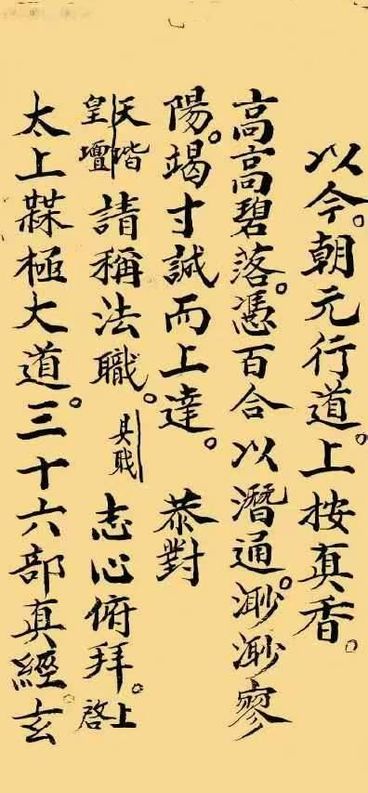 以今。朝元行道。上按真香。
高高碧落。憑百合以潛通。渺渺寥
陽。竭寸誠而上達。 恭對
天階皇壇 請稱法職。具職 志心俯拜。上啓
太上無極大道。三十六部真經玄